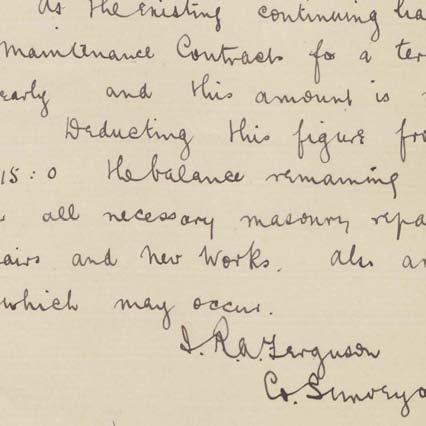 As the existing continuing
Maintenance Contracts for a
early and this amount is
Deducting this figure
15 : 0 the balance remaining
all necessary masonry
and New Works. Also
which may occur.
J. R. A. Ferguson
Co. Surveyo